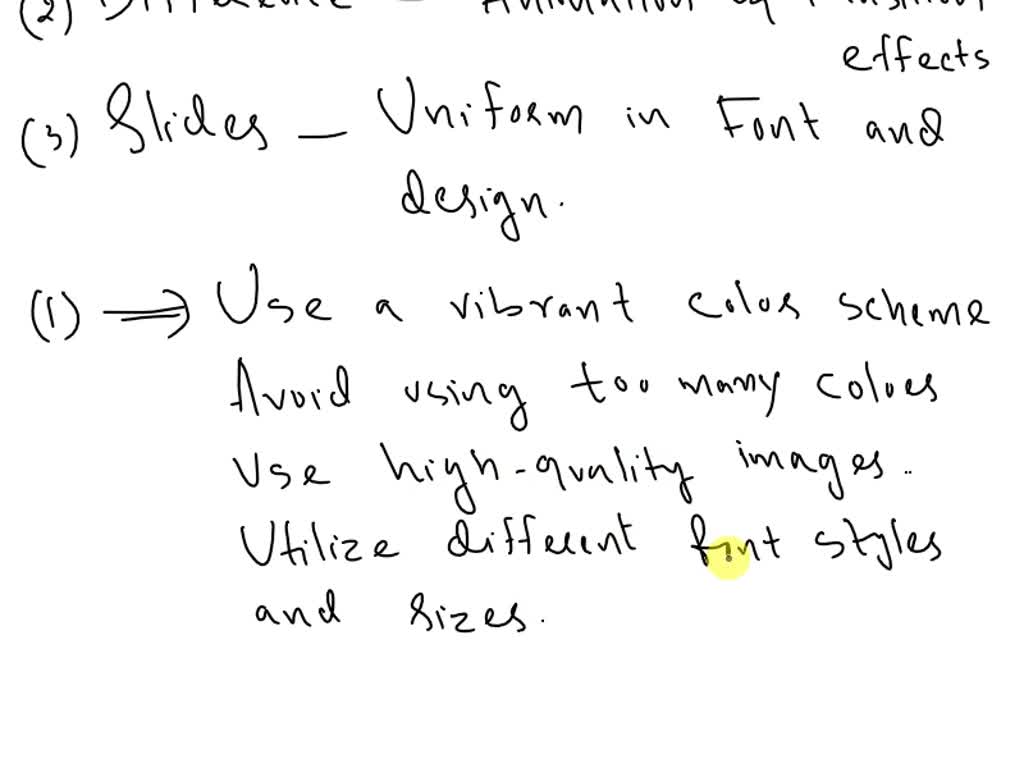 (2) Difference
effects
(3) Slides — Uniform in Font and
design.
(1) ⟹ Use a vibrant color scheme
Avoid using too many colors
Use high-quality images.
Utilize different font styles
and sizes.